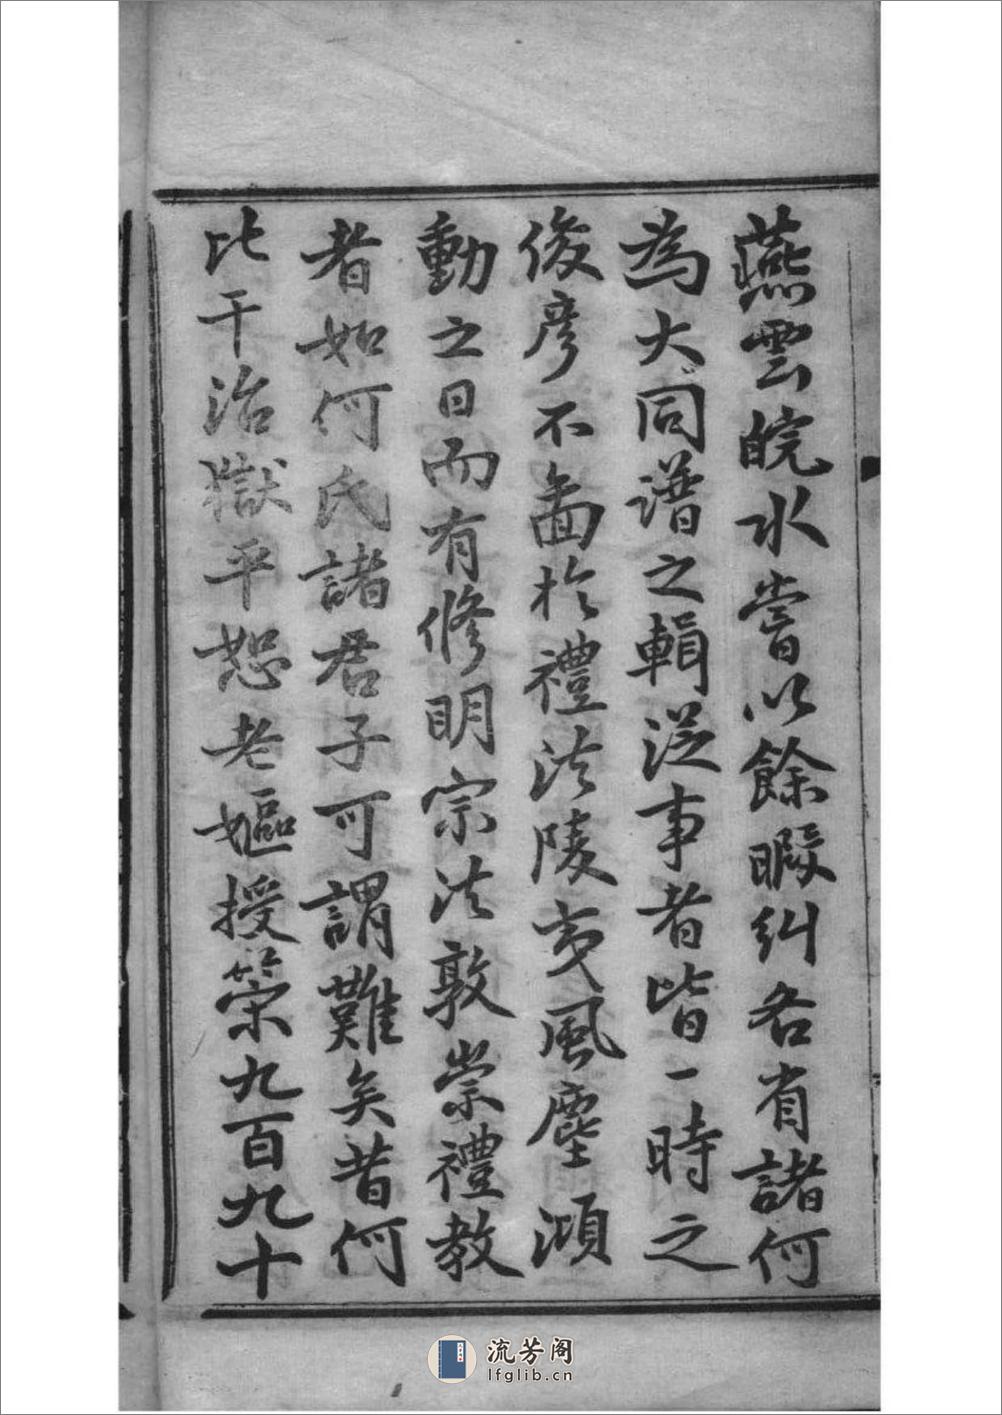 燕雲皖水嘗以餘暇糾各省諸何
為大同譜之輯從事者皆一時之
俊彥不圖於禮法陵夷風塵澒
動之日而有修明宗法敦崇禮教
者如何氏諸君子可謂難矣昔何
比干治獄平恕老嫗授策九百九十
流芳阁
lfglib.cn